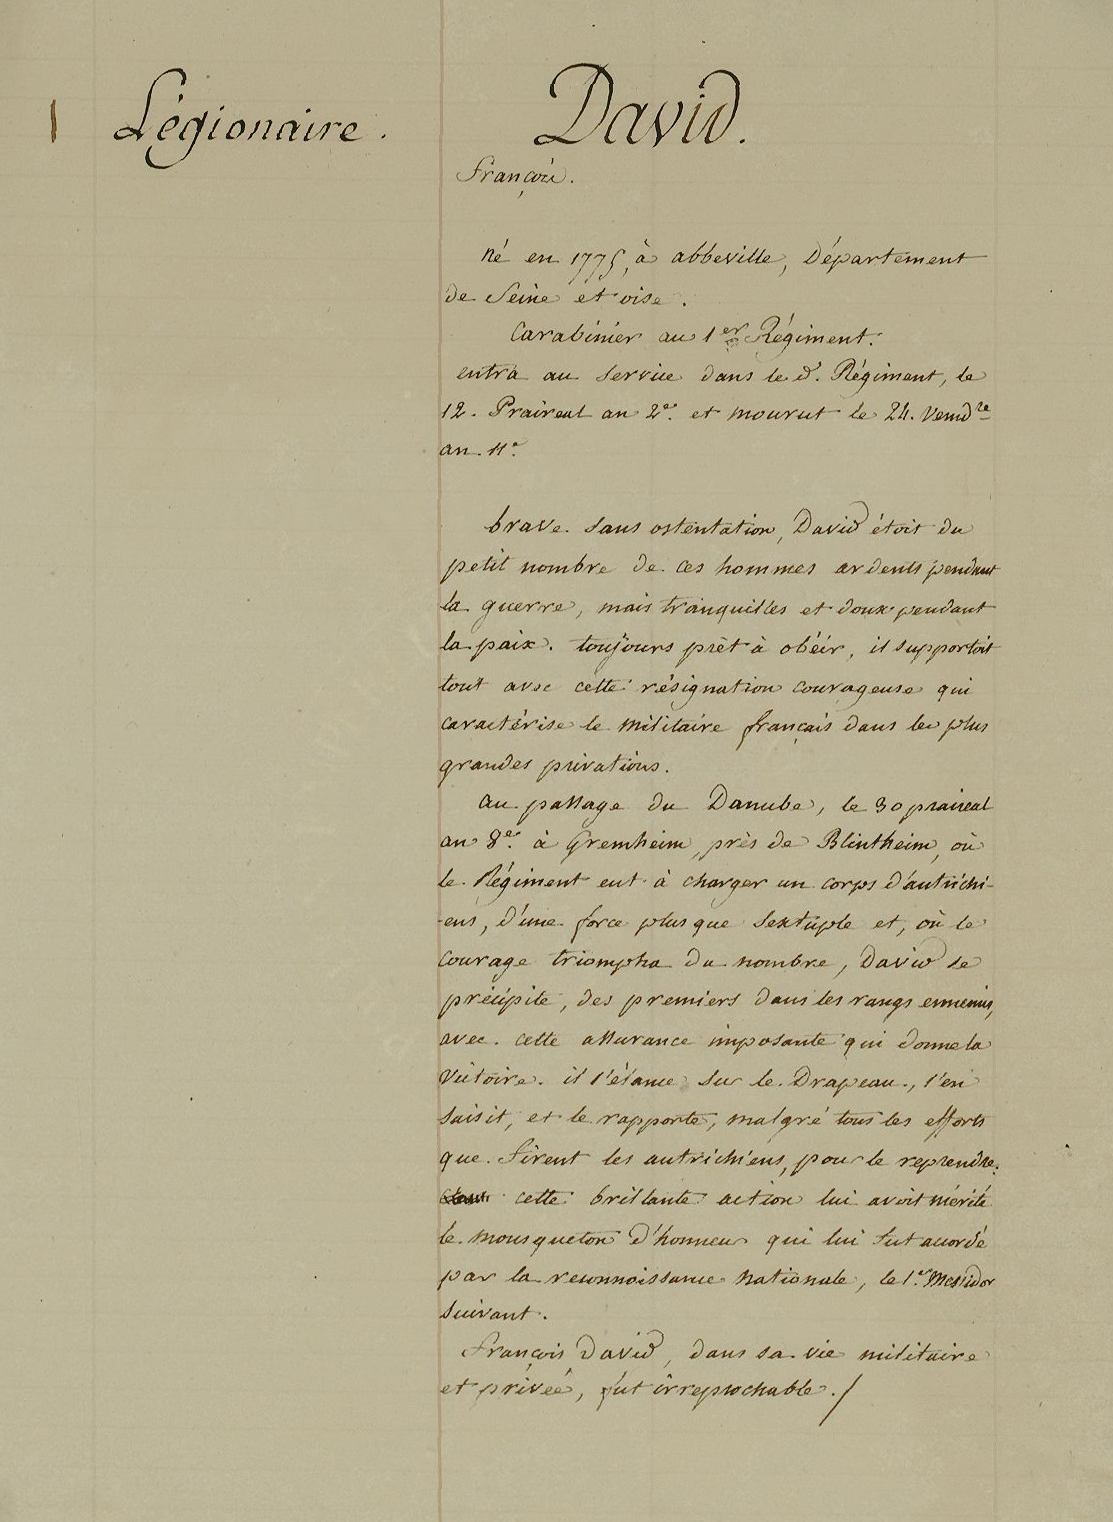 Légionaire. David.
françois.
né en 1775, à abbeville, Département
de Seine et oise.
Carabinier au 1er Régiment.
entra au service dans le d.t Régiment, le
12. Praireal an 2e. et mourut le 24. Vendre
an 11e
brave sans ostentation, David étoit du
petit nombre de ces hommes ardents pendant
la guerre, mais tranquilles et doux pendant
la paix. toujours prèt à obéir, il supportoit
tout avec cette résignation courageuse qui
caractérise le militaire français dans les plus
grandes privations.
au passage du Danube, le 30 praireal
an 8e. à Gremheim, près de Blintheim, où
le Régiment eut à charger un corps d'autrichi-
-ens, d'une force plus que sextuple et, où le
courage triompha du nombre, David se
précipite, des premiers dans les rangs ennemis,
avec cette assurance imposante qui donne la
victoire. il s'élance sur le Drapeau, s'en
saisit, et le rapporte, malgré tous les efforts
que firent les autrichiens, pour le reprendre.
cette brillante action lui avoit mérité
le mousqueton d'honneur qui lui fut accordé
par la reconnoissance nationale, le 1er. Messidor
suivant.
françois David, dans sa vie militaire
et privée, fut irreprochable./